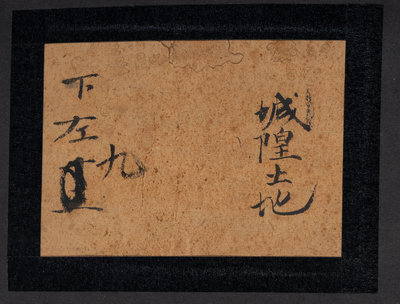 城隍土地
下左九